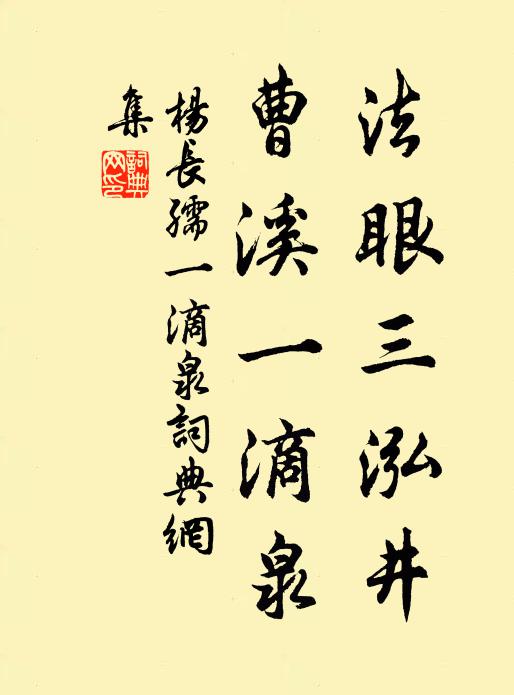 法眼三泓井
曹溪一滴泉
楊長孺一滴泉詞典網
集
詞典網印